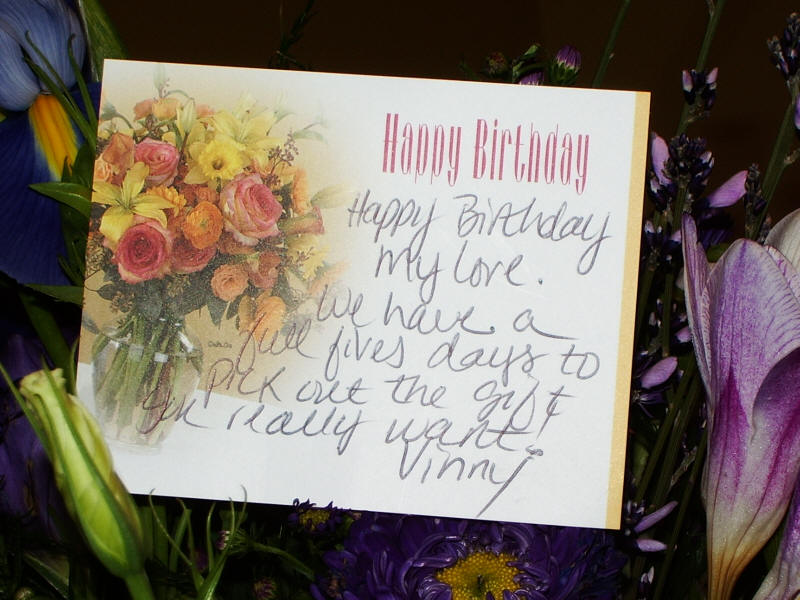 Happy Birthday
Happy Birthday
my love.
We have a
full fives days to
pick out the gift
you really want!
Vinny